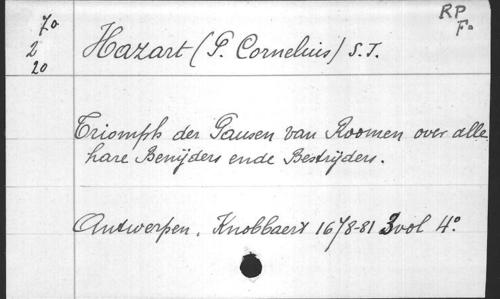 70
2
20
RP
F°
Hazart (P. Cornelius) S.J.
Triomph der Pausen van Roomen over alle
hare Benijders ende Bestrijders.
Antwerpen. Knobbaert 1678-81 3 vol 4°